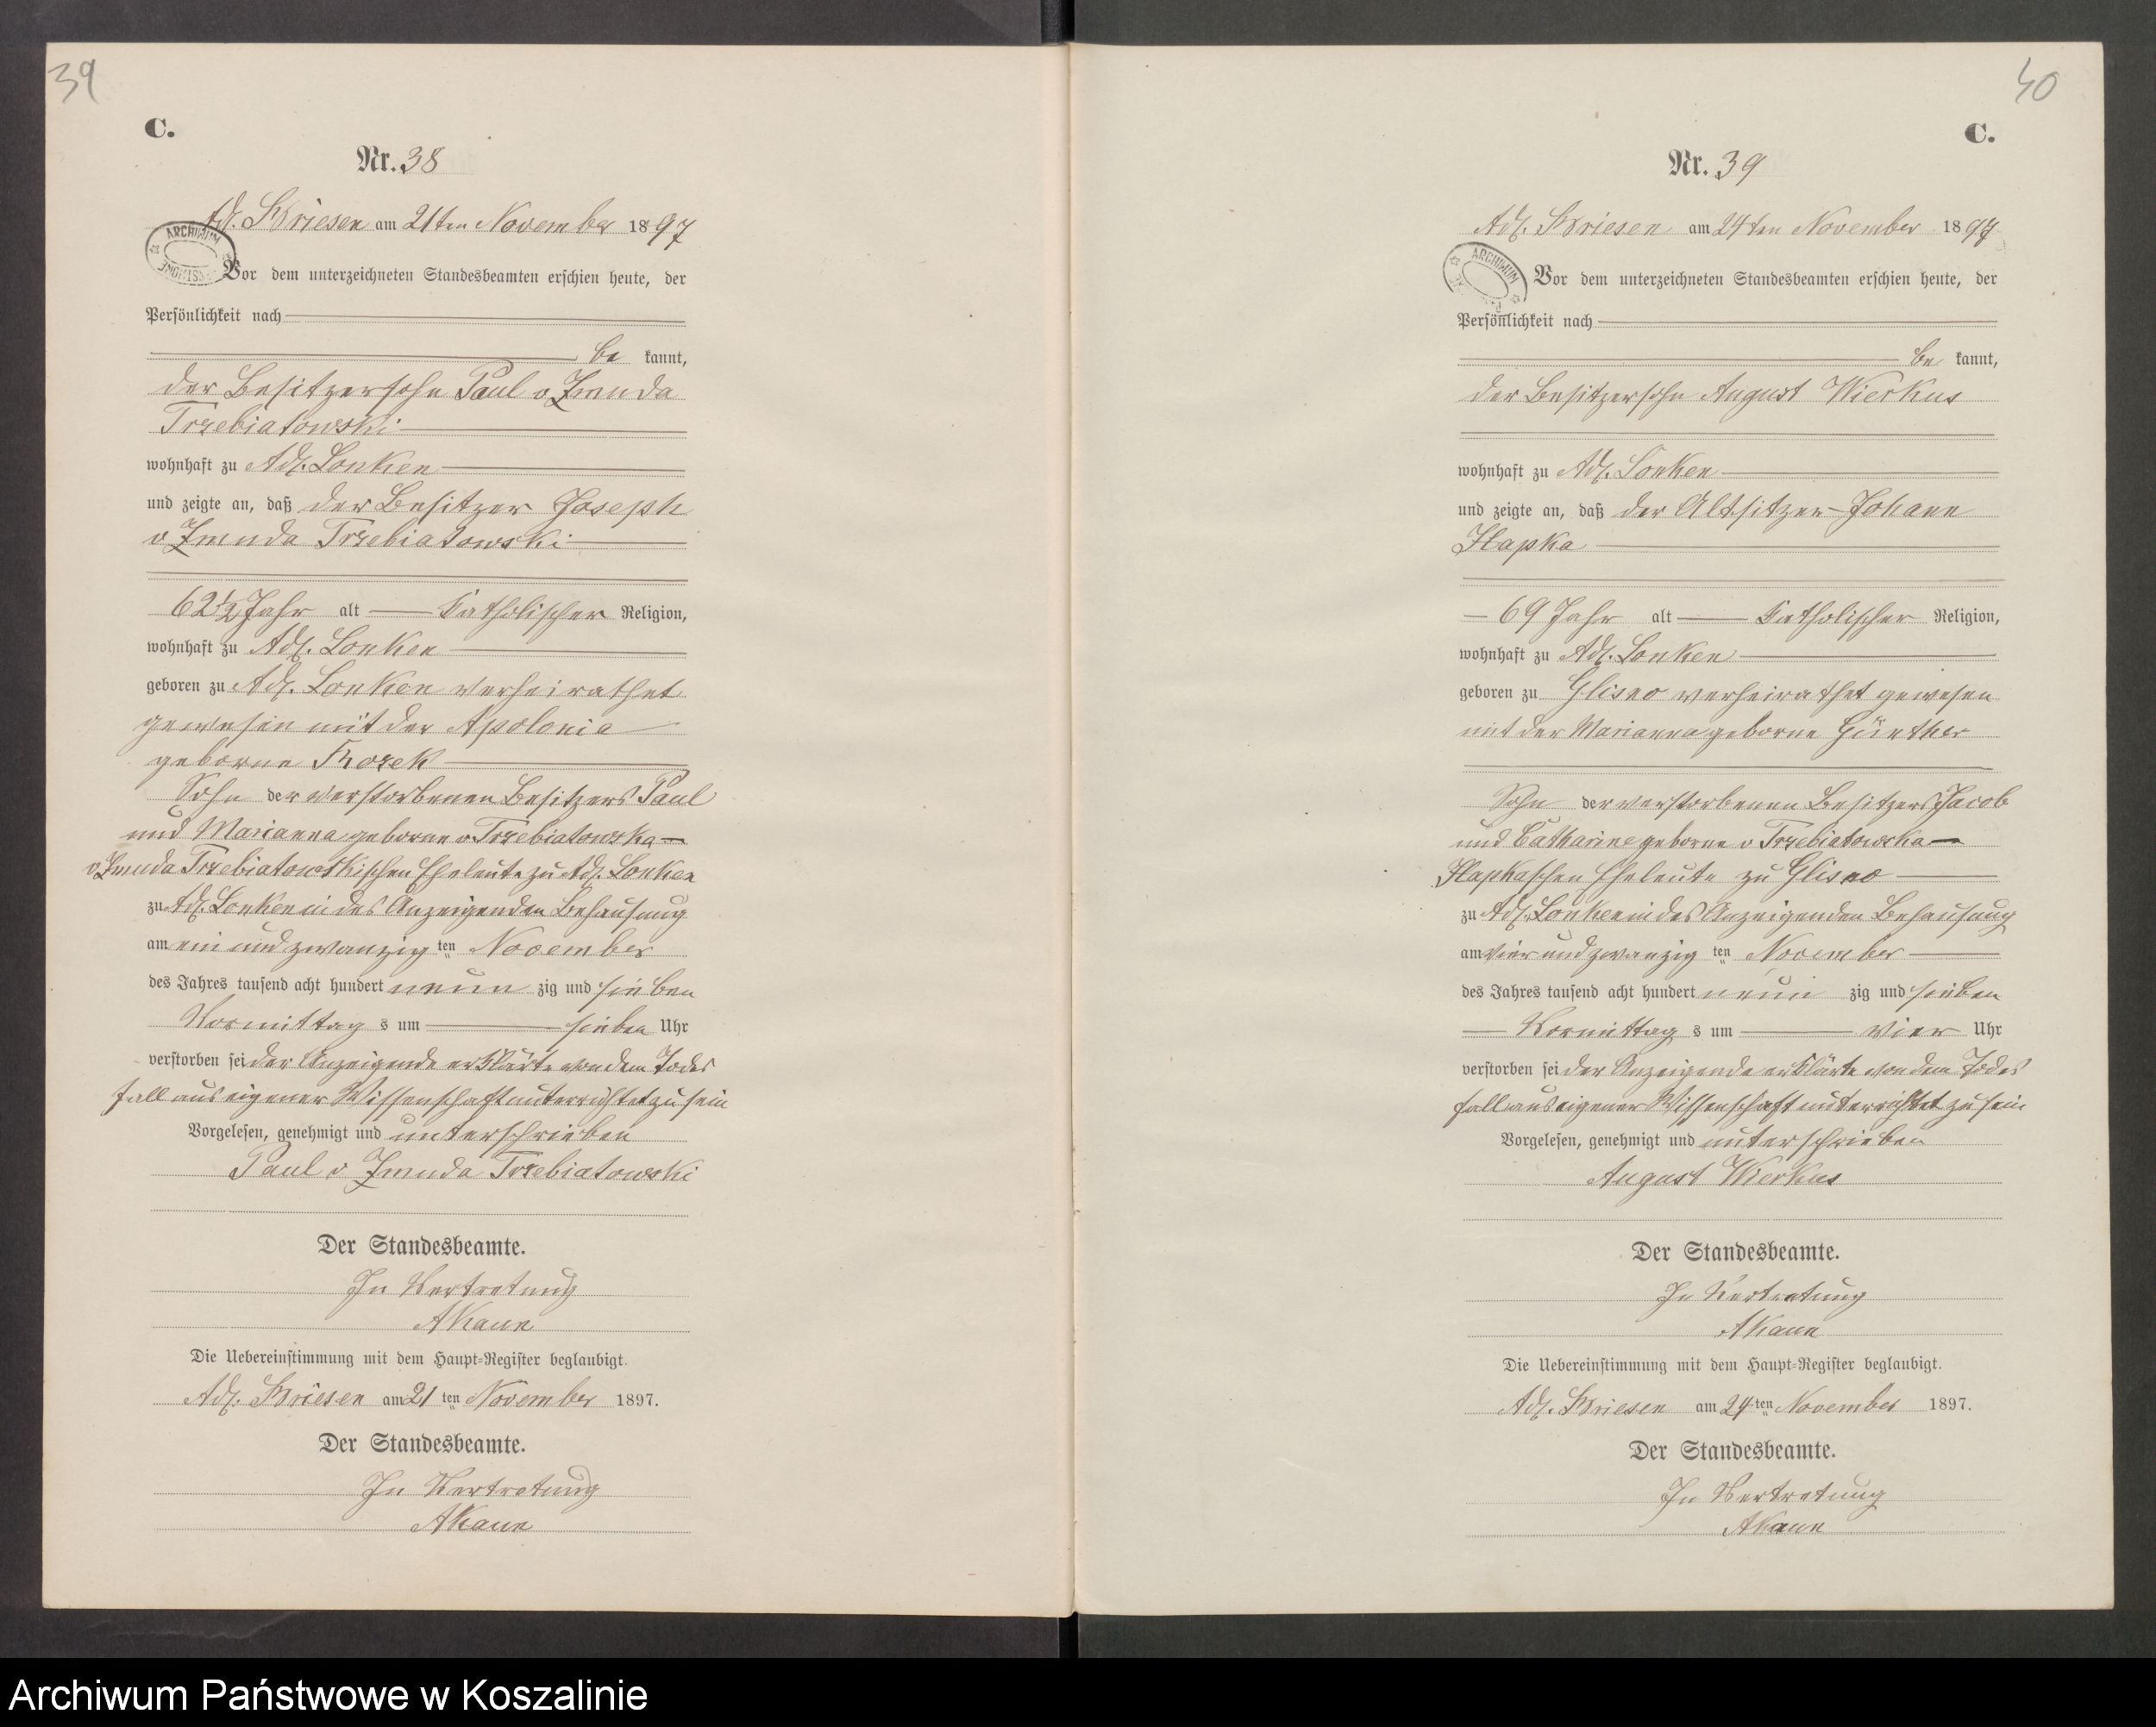 39
C.
Nr. 38
Adl. Briesen am 21ten November 1897
ARCHIWUM
Vor dem unterzeichneten Standesbeamten erschien heute, der
Persönlichkeit nach
be kannt,
der Besitzersohn Paul v Zmuda
Trzebiatowski
wohnhaft zu Adl. Lonken
und zeigte an, daß der Besitzer Joseph
v Zmuda Trzebiatowski
62½ Jahr alt katholischer Religion,
wohnhaft zu Adl. Lonken
geboren zu Adl. Lonken verheirathet
gewesen mit der Apolonia
geborne
Sohn der verstorbenen Besitzers Paul
und Marianna geborne v Trzebiatowska
v Zmuda Trzebiatowskischen Eheleute zu Adl. Lonken
zu Adl. Lonken in des Anzeigenden Behausung
am ein und zwanzig ten November
des Jahres tausend acht hundert neun zig und sieben
Vormittag s um sieben Uhr
verstorben sei der Anzeigende erklärte von dem Todes
fall aus eigener Wissenschaft unterrichtet zu sein
Vorgelesen, genehmigt und unterschrieben
Paul v Zmuda Trzebiatowski
Der Standesbeamte.
In Vertretung
AKaun
Die Uebereinstimmung mit dem Haupt-Register beglaubigt.
Adl. Briesen am 21 ten November 1897.
Der Standesbeamte.
In Vertretung
AKaun
40
C.
Nr. 39
Adl. Briesen am 24ten November 1897
ARCHIWUM
Vor dem unterzeichneten Standesbeamten erschien heute, der
Persönlichkeit nach
be kannt,
der Besitzersohn August Wierkus
wohnhaft zu Adl. Lonken
und zeigte an, daß der Altsitzer Johann
Hapka
69 Jahr alt katholischer Religion,
wohnhaft zu Adl. Lonken
geboren zu Glisno verheirathet gewesen
mit der Marianna geborne Günther
Sohn der verstorbenen Besitzers Jacob
und Catharine geborne v Trzebiatowska
Hapkaschen Eheleute zu Glisno
zu Adl. Lonken in des Anzeigenden Behausung
am vier und zwanzig ten November
des Jahres tausend acht hundert neun zig und sieben
Vormittag s um vier Uhr
verstorben sei der Anzeigende erklärte von dem Todes
fall aus eigener Wissenschaft unterrichtet zu sein
Vorgelesen, genehmigt und unterschrieben
August Wierkus
Der Standesbeamte.
In Vertretung
AKaun
Die Uebereinstimmung mit dem Haupt-Register beglaubigt.
Adl. Briesen am 24 ten November 1897.
Der Standesbeamte.
In Vertretung
AKaun
Archiwum Państwowe w Koszalinie